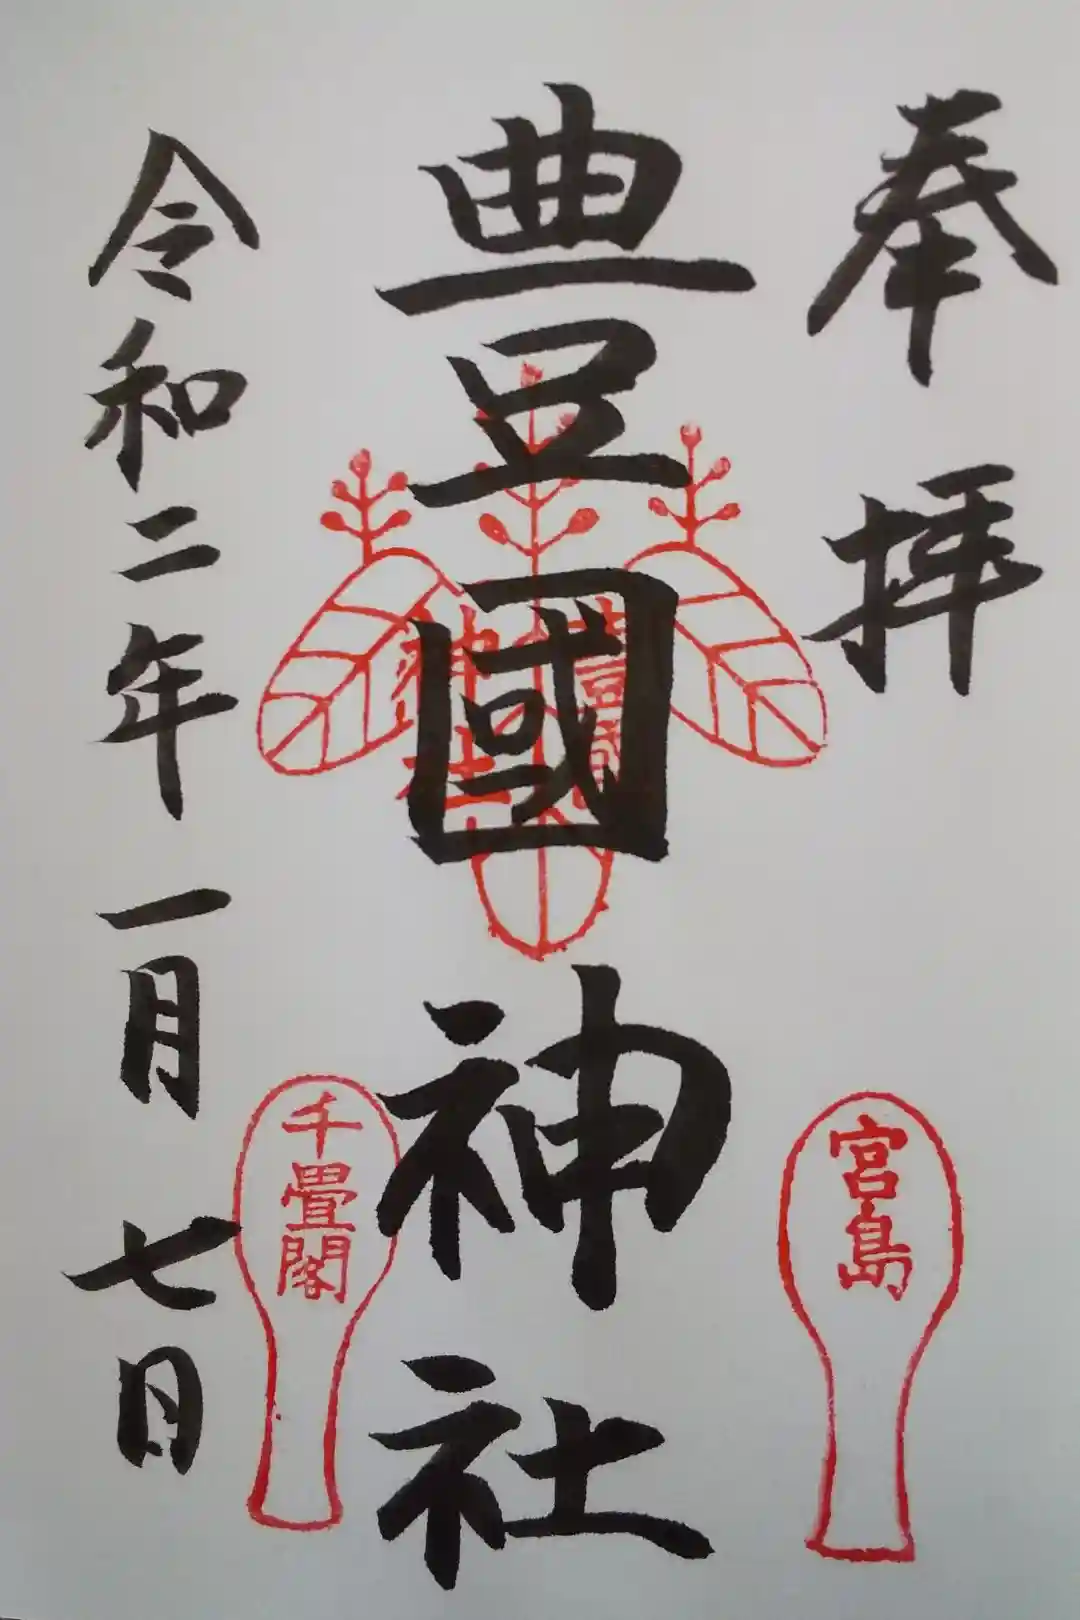 奉拝
宮島
豊國神社
豊國
神社
千畳閣
令和二年一月七日